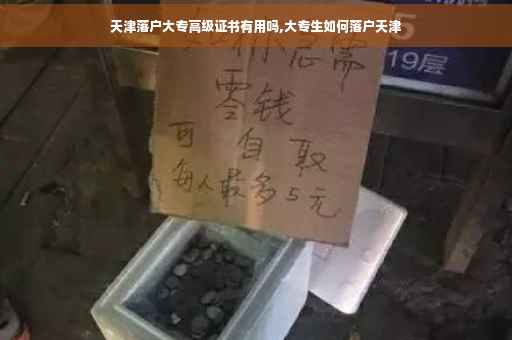 天津落户大专高级证书有用吗,大专生如何落户天津
5
19层
您需
零钱
可自取
每人最多5元